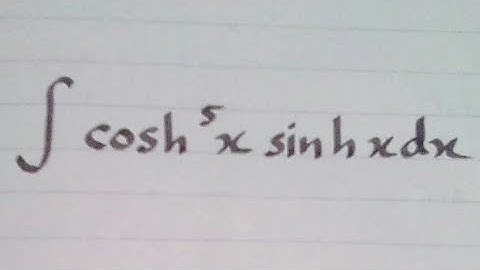 ∫ cosh⁵x sinh x dx